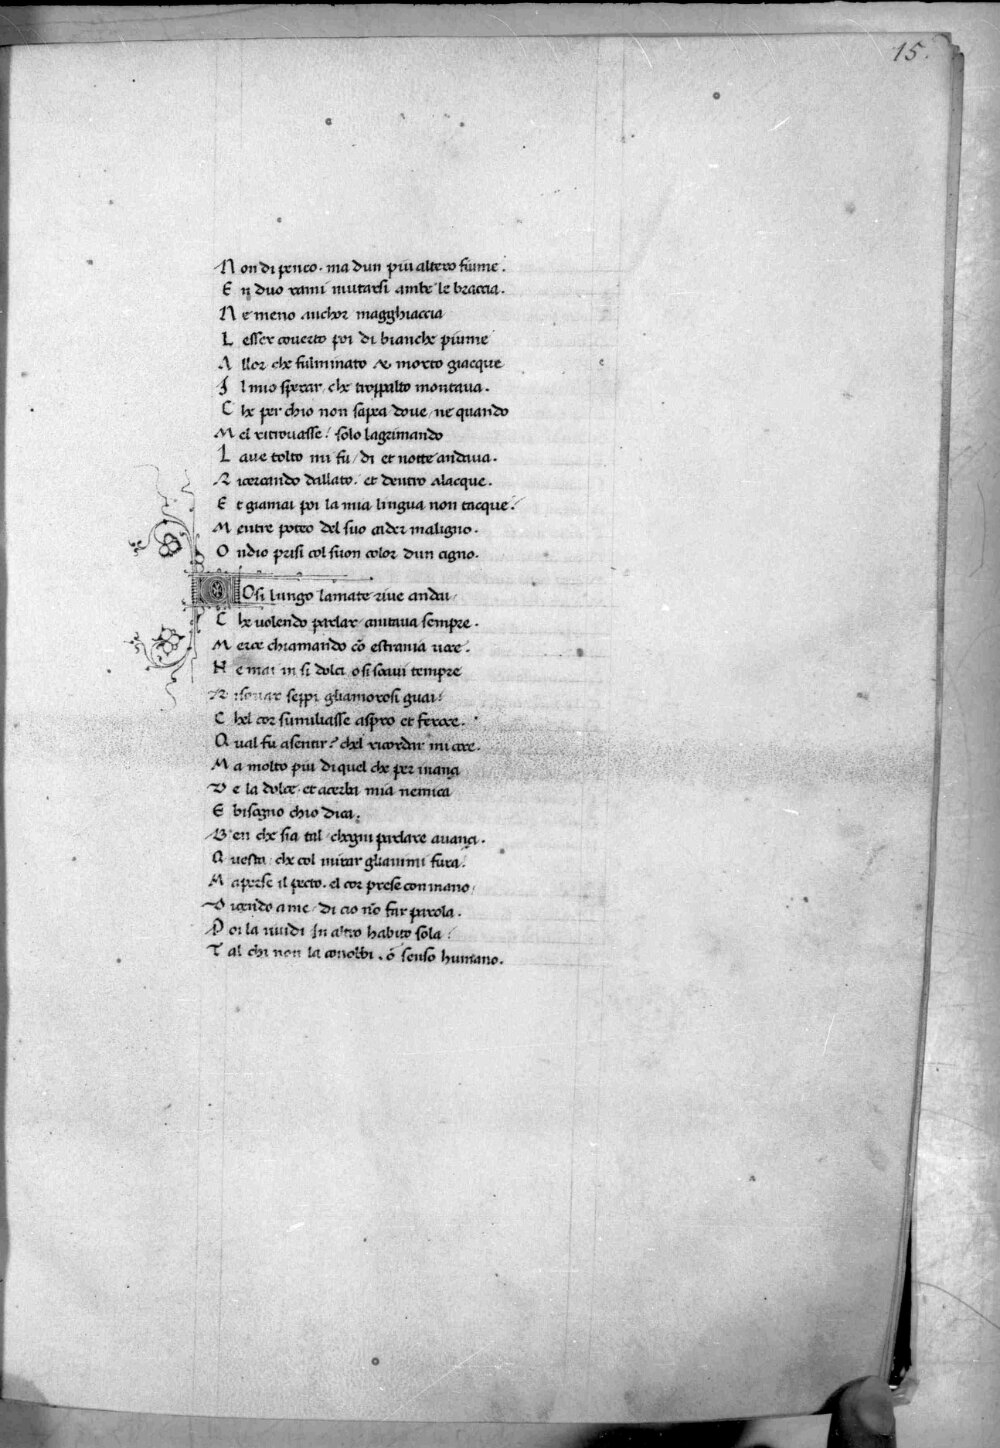 15.
Non di peneo. ma dun piu altero fiume.
En duo rami mutarsi ambe le braccia.
Ne meno anchor magghiaccia
Lesser couerto poi di bianche piume
Allor che fulminato et morto giacque
Il mio sperar / che troppalto montaua.
Che perchio non sapea doue / ne quando
Mel ritrouasse / solo lagrimando
Laue tolto mi fu / di et notte andaua.
Ricercando dallato. et dentro alacque.
Et giamai poi la mia lingua non tacque /
Mentre poteo del suo cader maligno.
Ondio presi col suon color dun cigno.
Cosi lungo lamate riue andai /
Che uolendo parlar / cantaua sempre.
Merce chiamando cō estrania uoce.
Ne mai in si dolci o si soaui tempre
Risonar seppi gliamorosi guai /
Chel cor sumiliasse aspro et feroce.
Qual fu a sentir? chel ricordar mi coce.
Ma molto piu di quel che per inançi
De la dolce. et acerba mia nemica
E bisogno chio dica.
Ben che sia tal / chogni parlare auançi.
Questa / che col mirar gliamimi fura.
Maperse il pecto. el cor prese con mano /
Dicendo a me / di cio nō far parola.
Poi la riuidi in altro habito sola /
Tal chi non la conobbi . o senso humano.